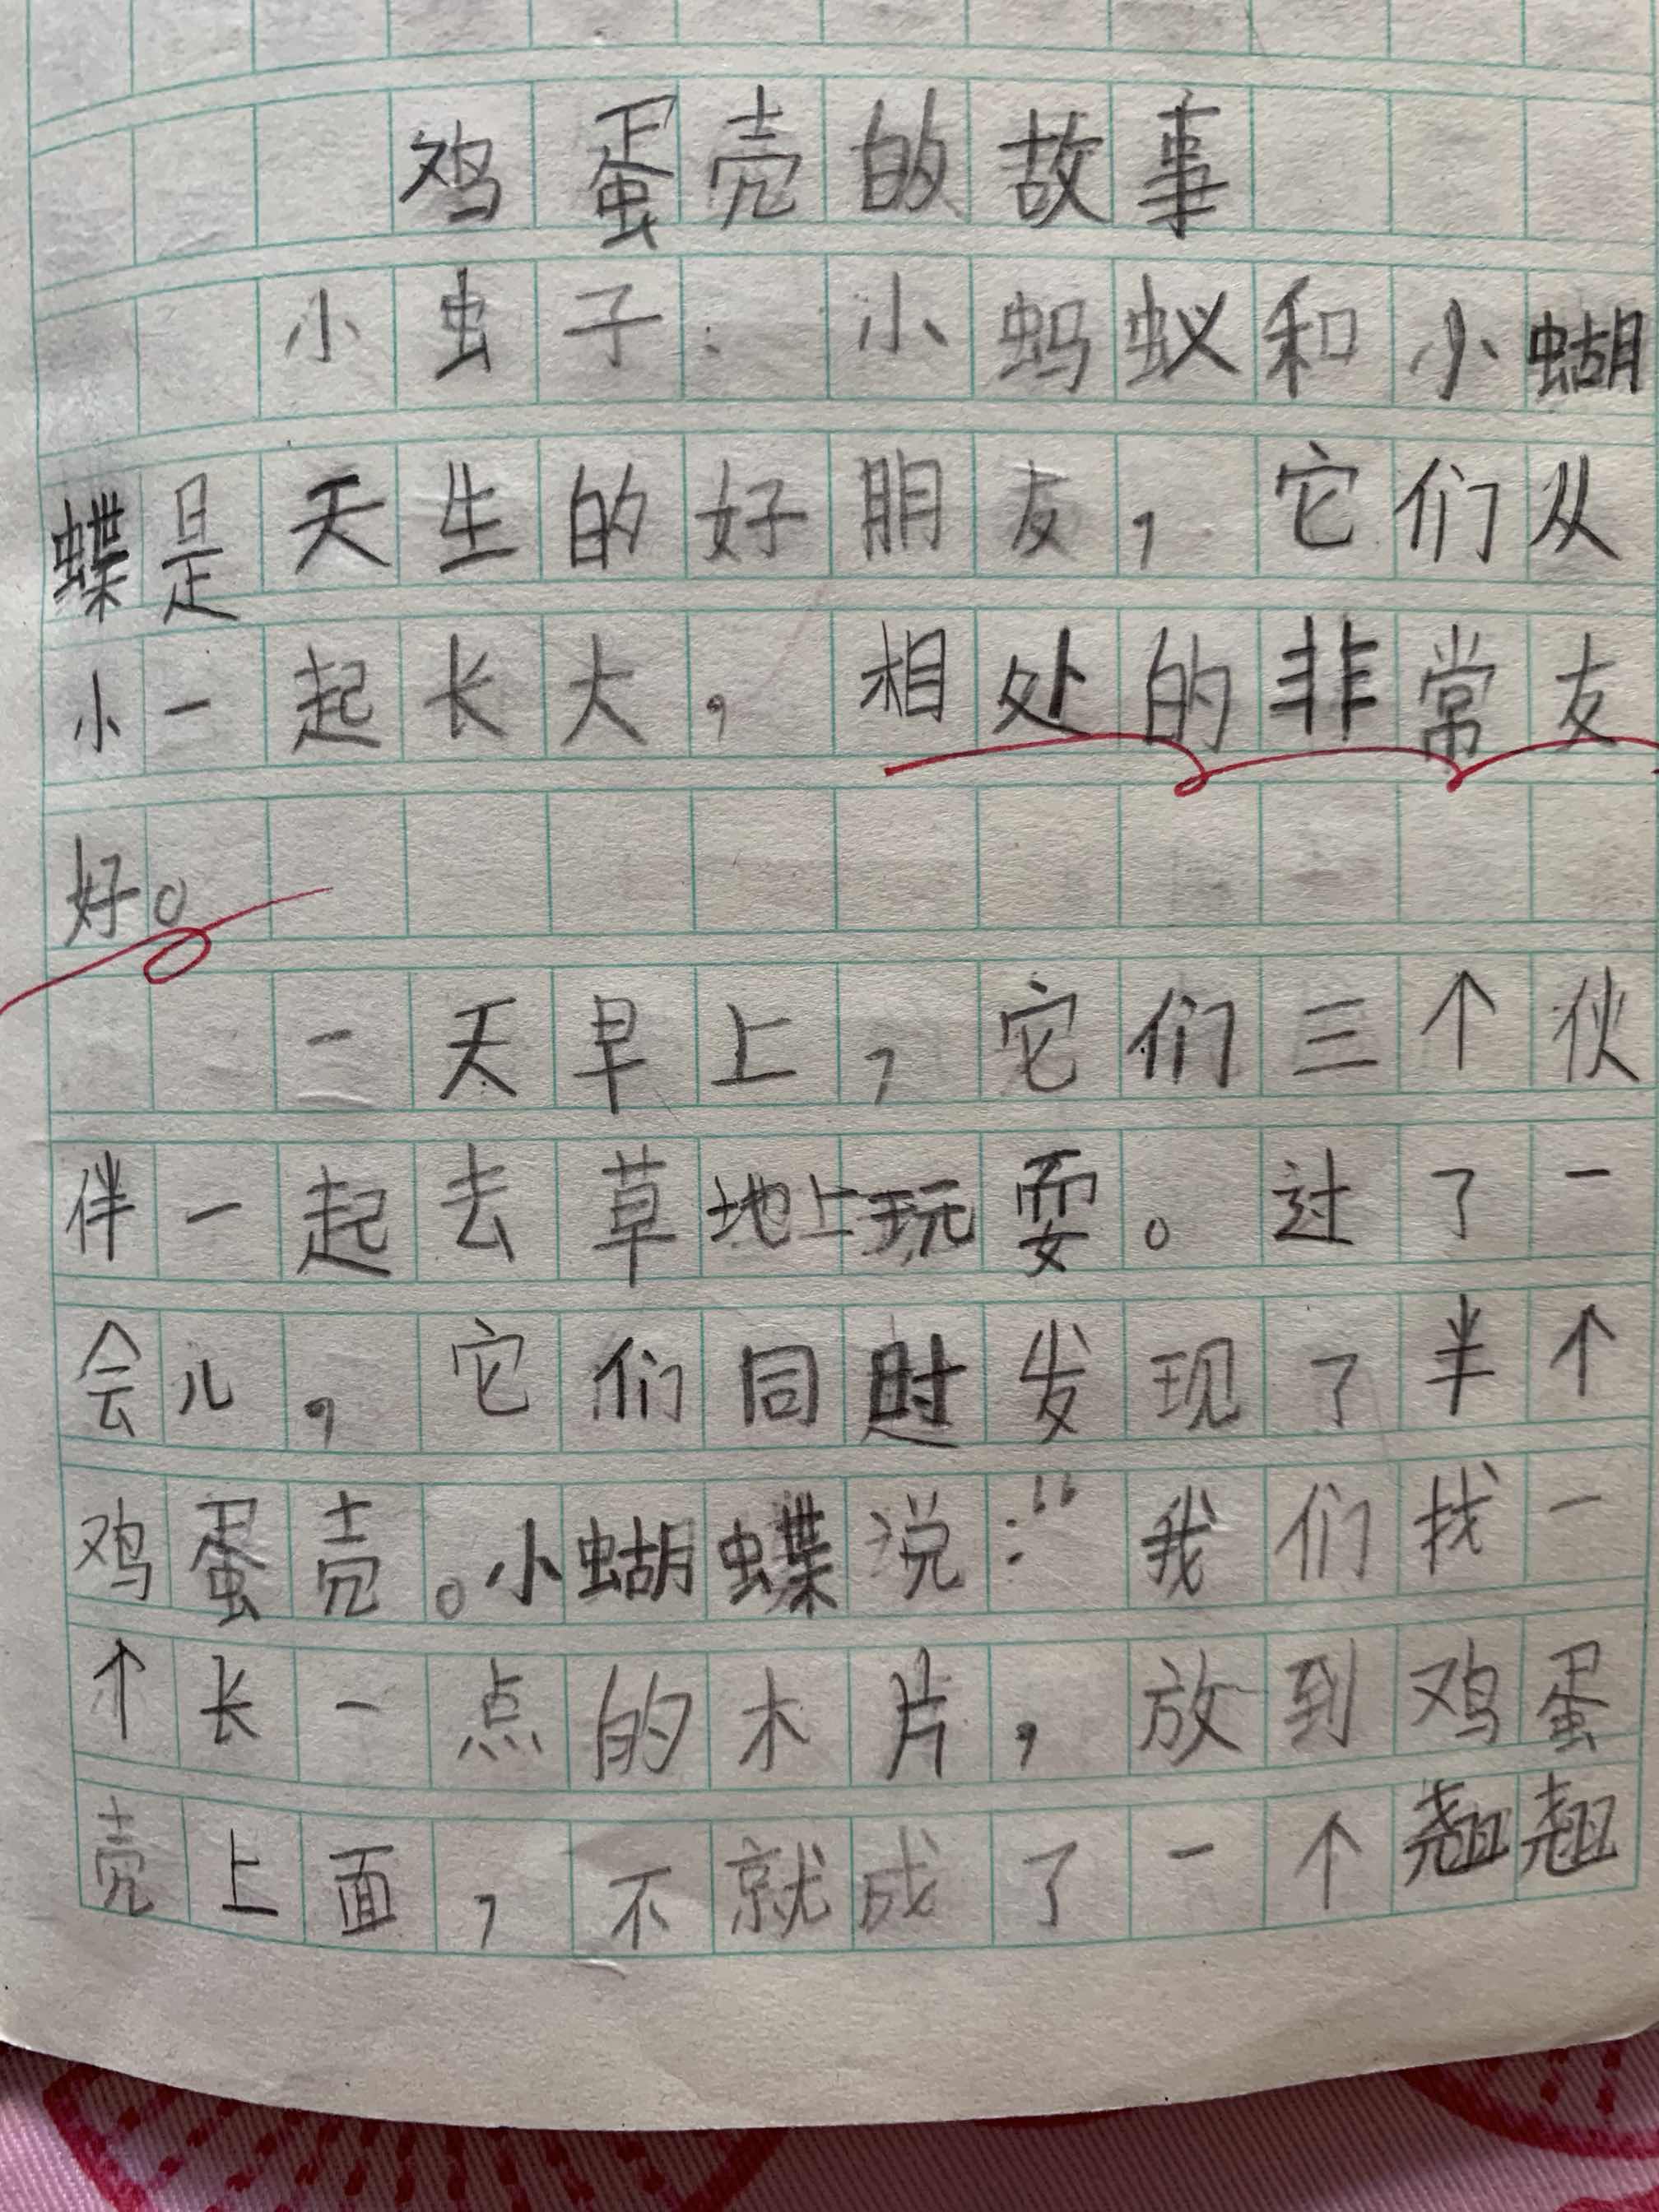 鸡蛋壳的故事
小虫子、小蚂蚁和小蝴
蝶是天生的好朋友，它们从
小一起长大，相处的非常友
好。
一天早上，它们三个伙
伴一起去草地上玩耍。过了一
会儿，它们同时发现了半个
鸡蛋壳。小蝴蝶说：“我们找一
个长一点的木片，放到鸡蛋
壳上面，不就成了一个翘翘